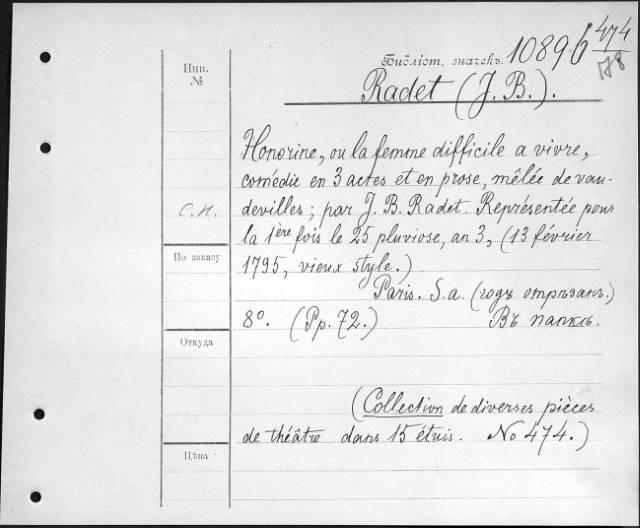 Инв.
№
Библіот. значекъ. 10896 474
Radet (J. B.).
Honorine, ou la femme difficile a vivre,
comédie en 3 actes et en prose, mêlée de vau-
c. п.
devilles; par J. B. Radet. Représentée pour
la 1ère fois le 25 pluviose, an 3, (13 février
По заказу
1795, vieux style.)
Paris. S. a. (годъ отрѣзанъ.)
8º. (Pp. 72.) Въ папкѣ.
Откуда
(Collection de diverses pièces
de théâtre dans 15 étuis. No 474.)
Цѣна